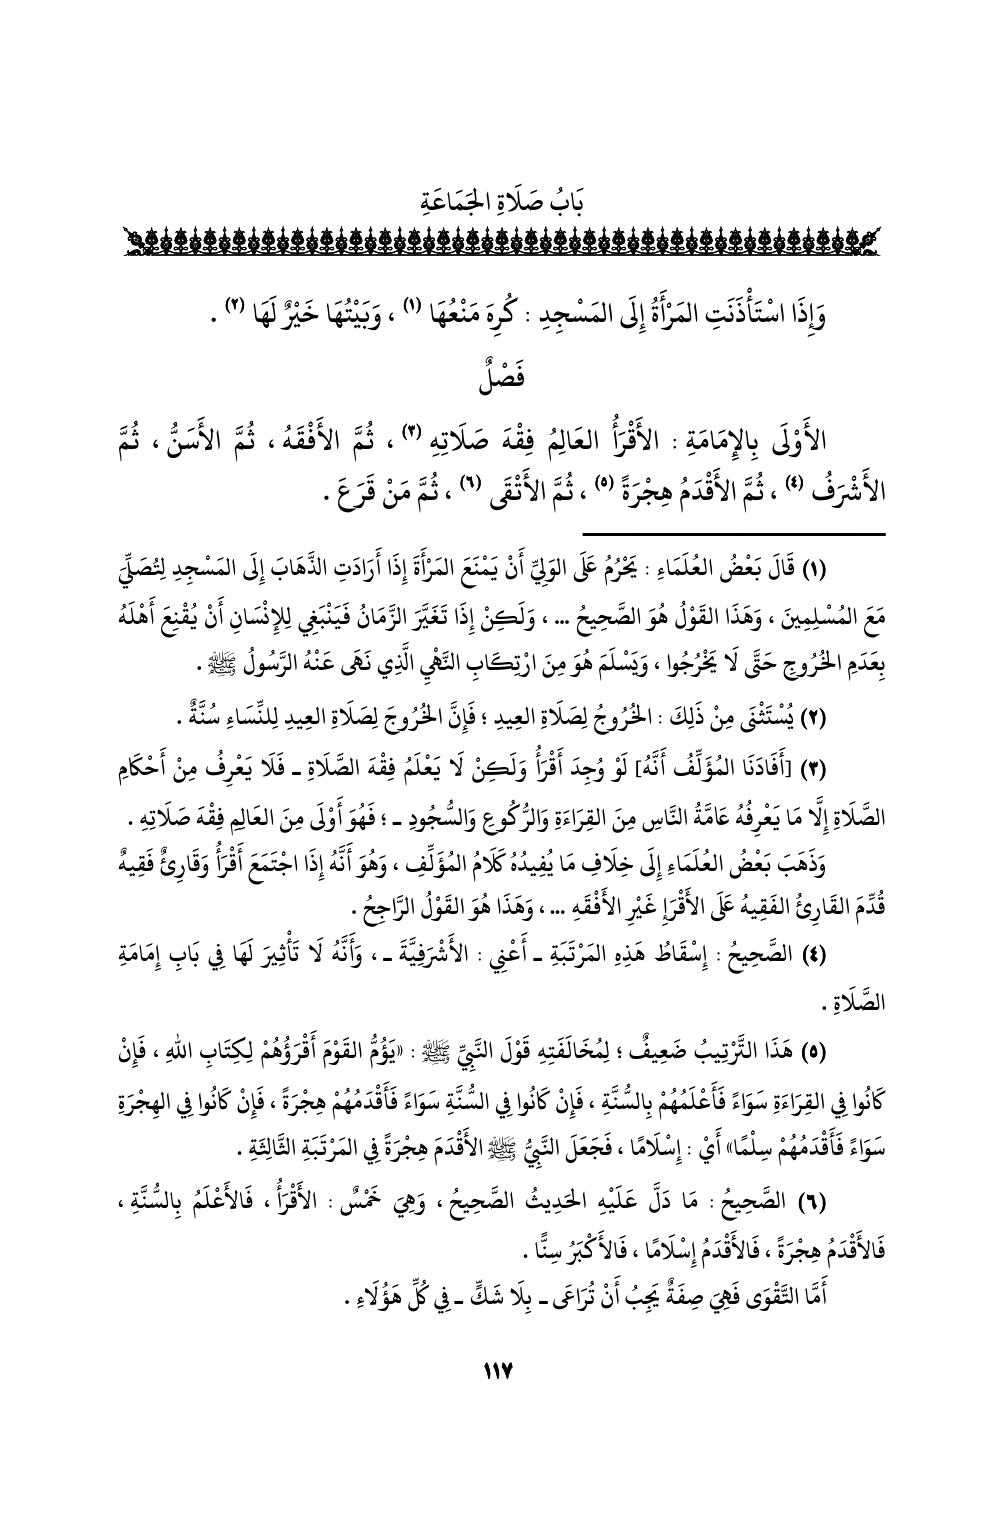 بَابُ صَلَاةِ الجَمَاعَةِ
وَإِذَا اسْتَأْذَنَتِ المَرْأَةُ إِلَى المَسْجِدِ : كُرِهَ مَنْعُهَا (١) ، وَبَيْتُهَا خَيْرٌ لَهَا (٢) .
فَصْلٌ
الأَوْلَى بِالإِمَامَةِ : الأَقْرَأُ العَالِمُ فِقْهَ صَلَاتِهِ (٣) ، ثُمَّ الأَفْقَهُ ، ثُمَّ الأَسَنُّ ، ثُمَّ
الأَشْرَفُ (٤) ، ثُمَّ الأَقْدَمُ هِجْرَةً (٥) ، ثُمَّ الأَتْقَى (٦) ، ثُمَّ مَنْ قَرَعَ .
(١) قَالَ بَعْضُ العُلَمَاءِ : يَحْرُمُ عَلَى الوَلِيِّ أَنْ يَمْنَعَ المَرْأَةَ إِذَا أَرَادَتِ الذَّهَابَ إِلَى المَسْجِدِ لِتُصَلِّيَ
مَعَ المُسْلِمِينَ ، وَهَذَا القَوْلُ هُوَ الصَّحِيحُ ... ، وَلَكِنْ إِذَا تَغَيَّرَ الزَّمَانُ فَيَنْبَغِي لِلإِنْسَانِ أَنْ يُقْنِعَ أَهْلَهُ
بِعَدَمِ الخُرُوجِ حَتَّى لَا يَخْرُجُوا ، وَيَسْلَمَ هُوَ مِنَ ارْتِكَابِ النَّهْيِ الَّذِي نَهَى عَنْهُ الرَّسُولُ ﷺ .
(٢) يُسْتَثْنَى مِنْ ذَلِكَ : الخُرُوجُ لِصَلَاةِ العِيدِ ؛ فَإِنَّ الخُرُوجَ لِصَلَاةِ العِيدِ لِلنِّسَاءِ سُنَّةٌ .
(٣) [أَفَادَنَا المُؤَلِّفُ أَنَّهُ] لَوْ وُجِدَ أَقْرَأُ وَلَكِنْ لَا يَعْلَمُ فِقْهَ الصَّلَاةِ ـ فَلَا يَعْرِفُ مِنْ أَحْكَامِ
الصَّلَاةِ إِلَّا مَا يَعْرِفُهُ عَامَّةُ النَّاسِ مِنَ القِرَاءَةِ وَالرُّكُوعِ وَالسُّجُودِ ـ ؛ فَهُوَ أَوْلَى مِنَ العَالِمِ فِقْهَ صَلَاتِهِ .
وَذَهَبَ بَعْضُ العُلَمَاءِ إِلَى خِلَافِ مَا يُفِيدُهُ كَلَامُ المُؤَلِّفِ ، وَهُوَ أَنَّهُ إِذَا اجْتَمَعَ أَقْرَأُ وَقَارِئٌ فَقِيهٌ
قُدِّمَ القَارِئُ الفَقِيهُ عَلَى الأَقْرَإِ غَيْرِ الأَفْقَهِ ... ، وَهَذَا هُوَ القَوْلُ الرَّاجِحُ .
(٤) الصَّحِيحُ : إِسْقَاطُ هَذِهِ المَرْتَبَةِ ـ أَعْنِي : الأَشْرَفِيَّةَ ـ ، وَأَنَّهُ لَا تَأْثِيرَ لَهَا فِي بَابِ إِمَامَةِ
الصَّلَاةِ .
(٥) هَذَا التَّرْتِيبُ ضَعِيفٌ ؛ لِمُخَالَفَتِهِ قَوْلَ النَّبِيِّ ﷺ : «يَؤُمُّ القَوْمَ أَقْرَؤُهُمْ لِكِتَابِ اللهِ ، فَإِنْ
كَانُوا فِي القِرَاءَةِ سَوَاءً فَأَعْلَمُهُمْ بِالسُّنَّةِ ، فَإِنْ كَانُوا فِي السُّنَّةِ سَوَاءً فَأَقْدَمُهُمْ هِجْرَةً ، فَإِنْ كَانُوا فِي الهِجْرَةِ
سَوَاءً فَأَقْدَمُهُمْ سِلْمًا» أَيْ : إِسْلَامًا ، فَجَعَلَ النَّبِيُّ ﷺ الأَقْدَمَ هِجْرَةً فِي المَرْتَبَةِ الثَّالِثَةِ .
(٦) الصَّحِيحُ : مَا دَلَّ عَلَيْهِ الحَدِيثُ الصَّحِيحُ ، وَهِيَ خَمْسٌ : الأَقْرَأُ ، فَالأَعْلَمُ بِالسُّنَّةِ ،
فَالأَقْدَمُ هِجْرَةً ، فَالأَقْدَمُ إِسْلَامًا ، فَالأَكْبَرُ سِنًّا .
أَمَّا التَّقْوَى فَهِيَ صِفَةٌ يَجِبُ أَنْ تُرَاعَى ـ بِلَا شَكٍّ ـ فِي كُلِّ هَؤُلَاءِ .
١١٧